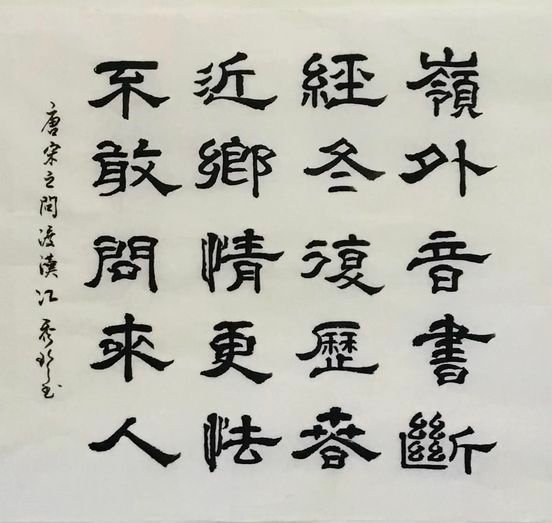 嶺外音書斷
經冬復歷春
近鄉情更怯
不敢問來人
唐宋之問渡漢江 秀